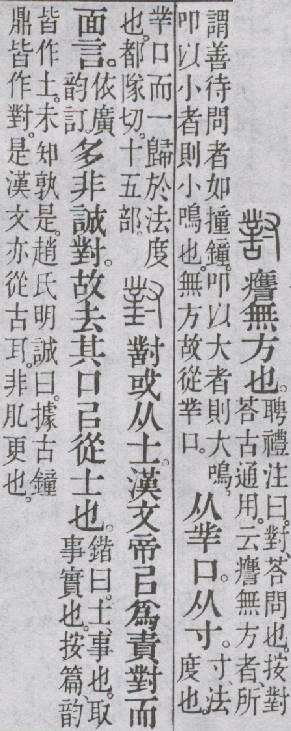 𡭊 譍無方也。聘禮注曰。對、荅問也。按對
荅古通用。云譍無方者所
謂善待問者如撞鐘。叩以大者則大鳴。
叩以小者則小鳴也。無方故從丵口。
从丵口。从寸。寸、法
度也。
丵口而一歸於法度
也。都隊切。十五部。
對 對或从士。漢文帝㠯爲責對而
面言。依廣
韵訂。
多非誠對。故去其口㠯從士也。鍇曰。士事也。取
事實也。按篇韵
皆作土。未知孰是。趙氏明誠曰。據古鐘
鼎皆作對。是漢文亦從古耳。非肊更也。